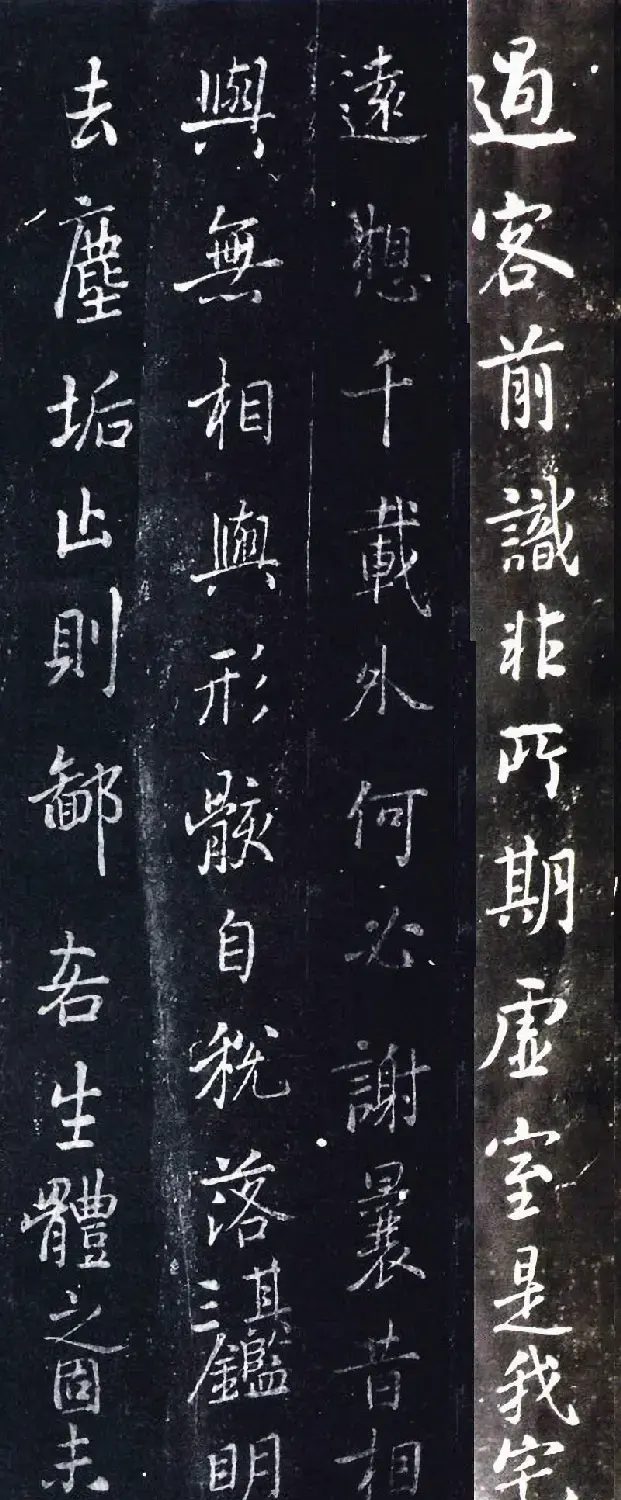 過客前識非所期虛室是我宅
遠想千載外何必謝曩昔相
與無相與形骸自脫落其三鑑明
去塵垢止則鄙吝生體之固未